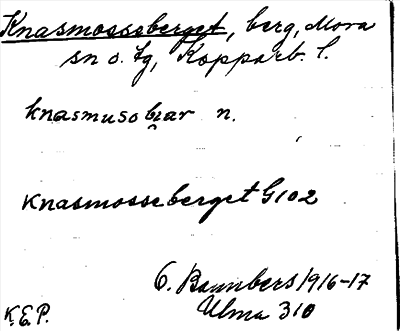 Knasmosseberget, berg, Mora
sn o. tg, Kopparb. l.
knasmusobi̯ar n.
Knasmosseberget G102
G. Bannbers 1916-17
Ulma 310
K.E.P.